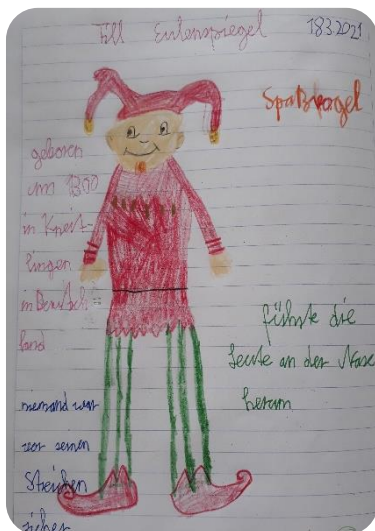 Till Eulenspiegel 18.3.2021
Spaßvogel
geboren
um 1300
in Kneit-
lingen
in Deutsch-
land
führte die
Leute an der Nase
herum
niemand war
vor seinen
Streichen
sicher